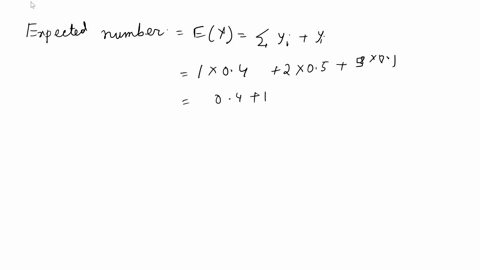 Expected number = E(Y) = Σ yi + yi
= 1 × 0.4 + 2 × 0.5 + × 0.1
= 0.4 + 1